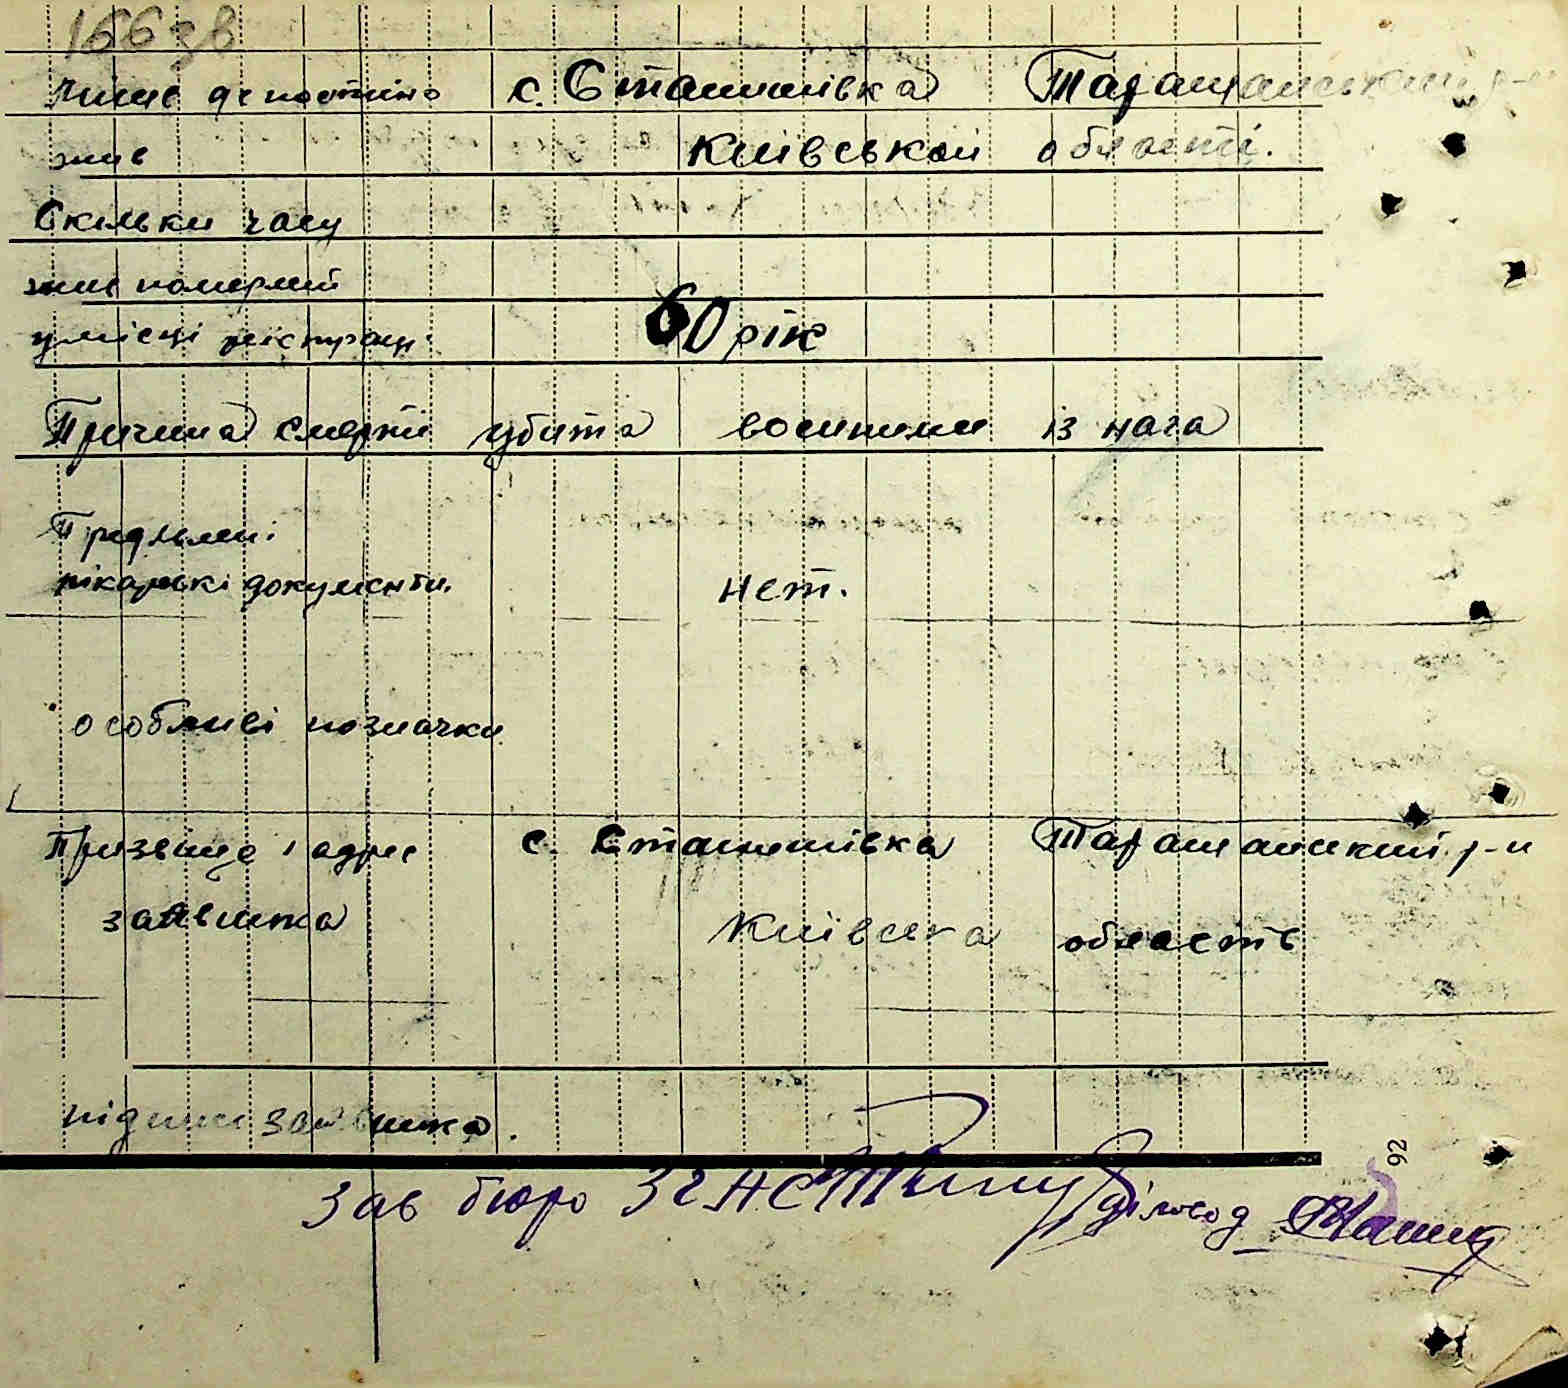 166 зв
Лише де постійно с. Сташишівка Таращанський р-н
жив Київськой області.
Скільки часу
жив померлий
у місці реістрації 60 рік
Причина смерті убита воєними із нага
Предлені
лікарські документи нет.
особливі позначки
Призвіще і адрес с. Сташишівка Таращанский р-н
заявника Київска область
підпис заявника.
92
Зав бюро ЗГАС Діловод